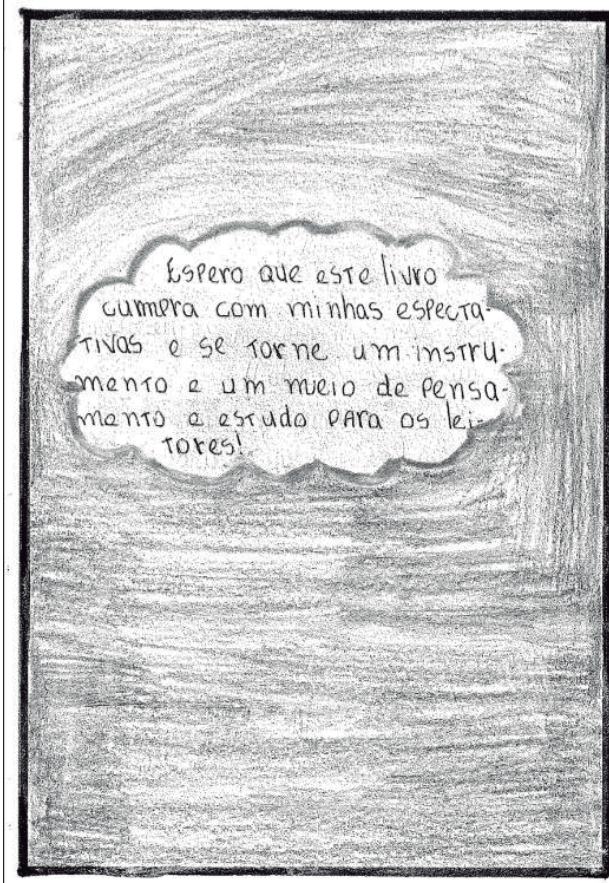 Espero que este livro
cumpra com minhas especta-
tivas e se torne um instru-
mento e um meio de pensa-
mento e estudo para os lei-
tores!